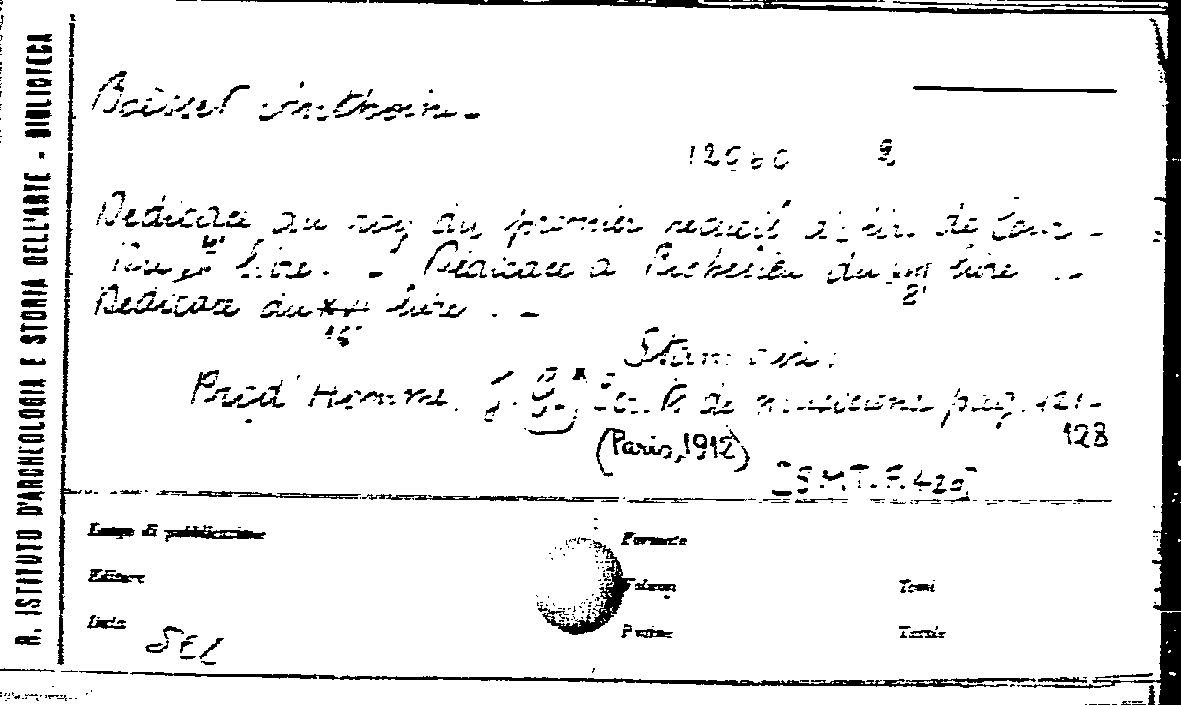 R. ISTITUTO D'ARCHEOLOGIA E STORIA DELL'ARTE - BIBLIOTECA
Boisset Anthoine
12060 2
Dedicace au roy du premier recueil de Cour -
livre. - Dedicace a Richelieu du livre . -
8'
Dedicace du livre . -
15'
Stam
Prod'Homme. J. G. Ecrits de musiciens pag. 121-
128
(Paris, 1912)
[S.M.T.F.429]
Luogo di pubblicazione
Formato
Editore
Volumi
Tomi
Data
Pagine
Tavole
SEL